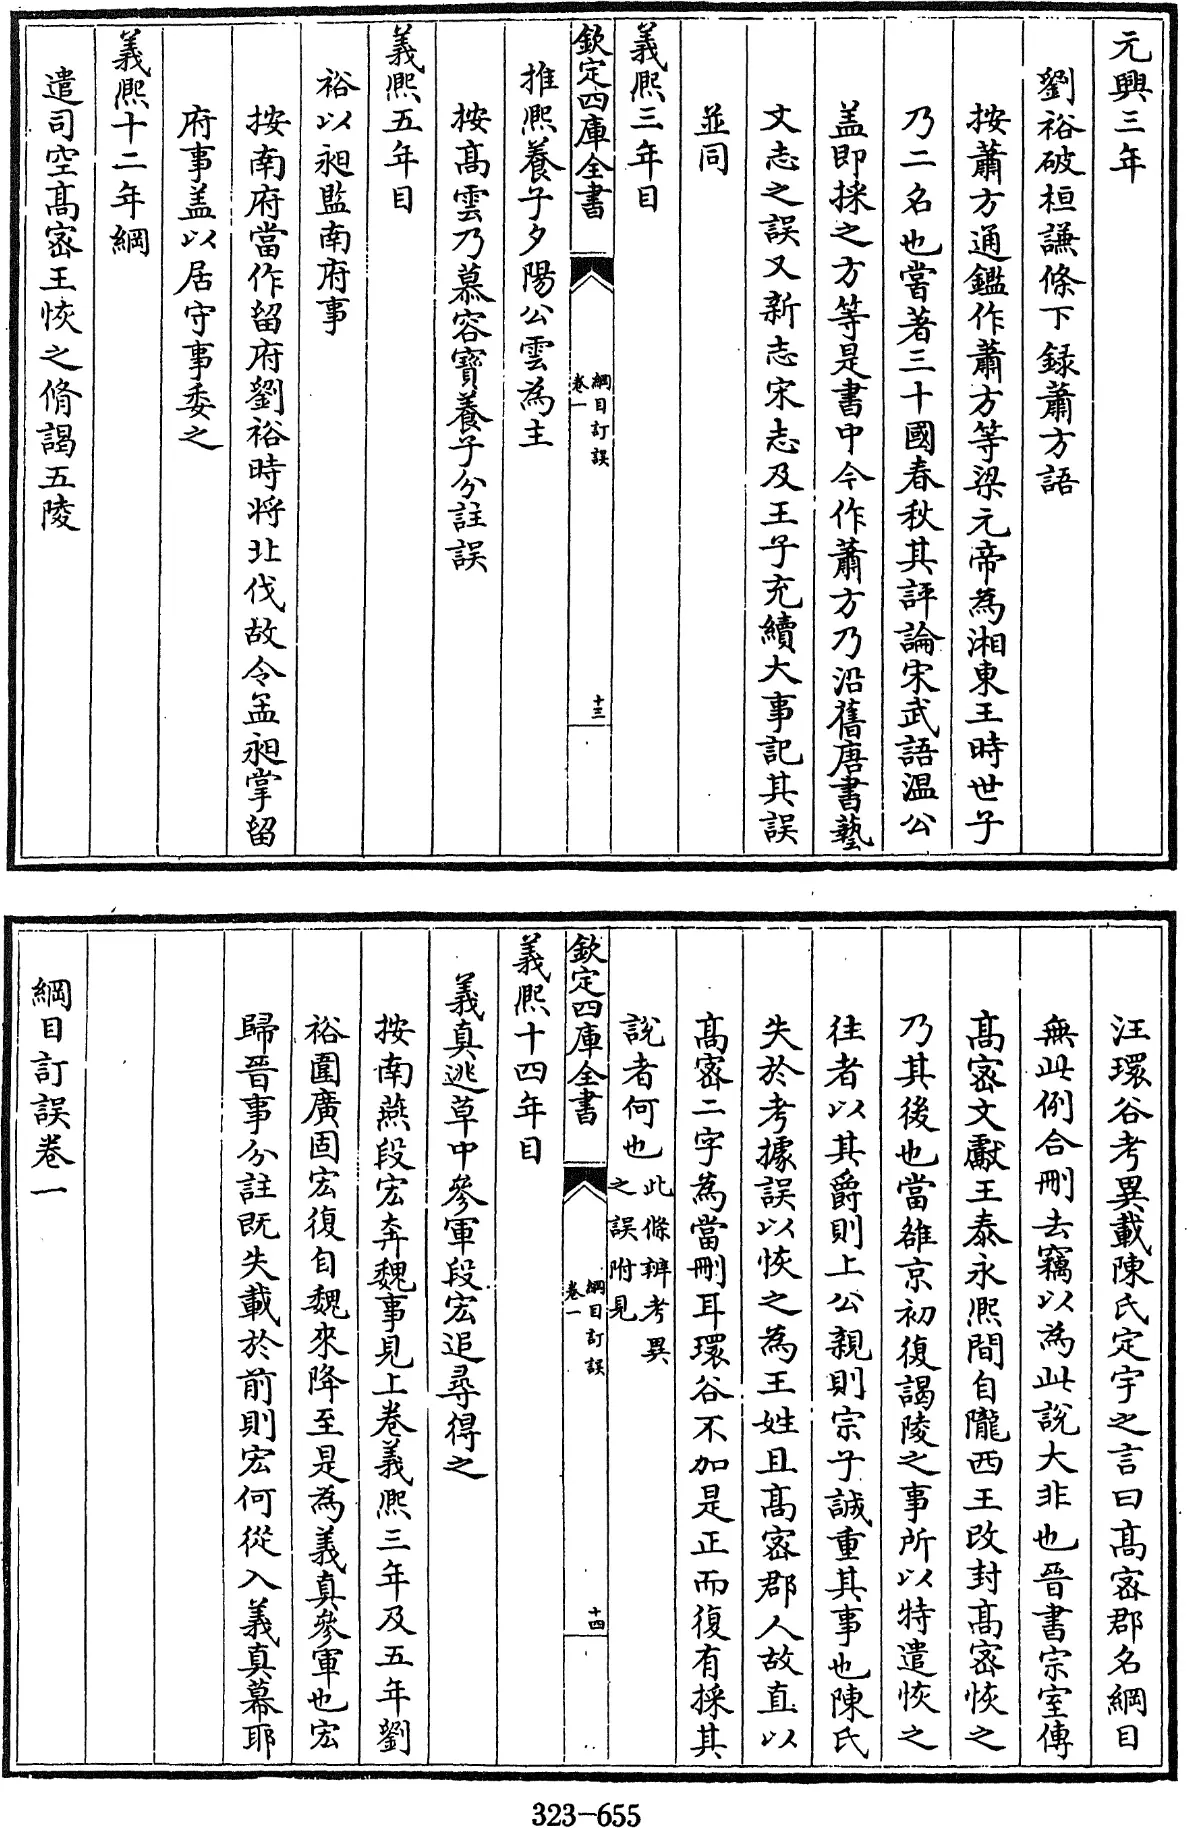 元興三年
劉裕破桓謙條下録蕭方語
按蕭方通鑑作蕭方等梁元帝為湘東王時世子
乃二名也嘗著三十國春秋其評論宋武語温公
盖即採之方等是書中今作蕭方乃沿舊唐書藝
文志之誤又新志宋志及王子充續大事記其誤
並同
義熈三年目
欽定四庫全書
綱目訂誤
卷一
十三
推熈養子夕陽公雲為主
按髙雲乃慕容寶養子分註誤
義熈五年目
裕以昶監南府事
按南府當作留府劉裕時將北伐故令孟昶掌留
府事盖以居守事委之
義熈十二年綱
遣司空髙宻王恢之脩謁五陵
汪環谷考異載陳氏定宇之言曰髙宻郡名綱目
無此例合刪去竊以為此說大非也晉書宗室傳
髙宻文獻王泰永熈間自隴西王改封髙宻恢之
乃其後也當雒京初復謁陵之事所以特遣恢之
往者以其爵則上公親則宗子誠重其事也陳氏
失於考據誤以恢之為王姓且髙宻郡人故直以
髙宻二字為當刪耳環谷不加是正而復有採其
說者何也此條辨考異之誤附見
欽定四庫全書
綱目訂誤
卷一
十四
義熈十四年目
義真逃草中參軍段宏追尋得之
按南燕段宏奔魏事見上卷義熈三年及五年劉
裕圍廣固宏復自魏來降至是為義真參軍也宏
歸晉事分註旣失載於前則宏何從入義真幕耶
綱目訂誤卷一
323-655